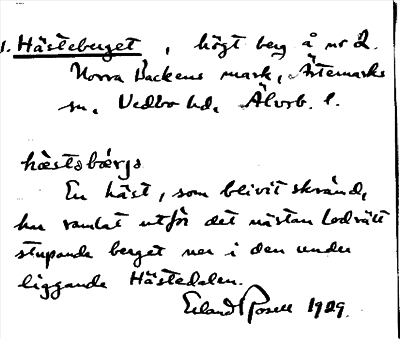 1. Hästeberget, högt berg å nr 2.
Norra Backens mark, Ärtemarks
sn, Vedbo hd, Älvsb. l.
hæstabærja
En häst, som blivit skrämd,
har ramlat utför det nästan lodrätt
stupande berget ner i den under
liggande Hästedalen.
Erland Rosell 1929.